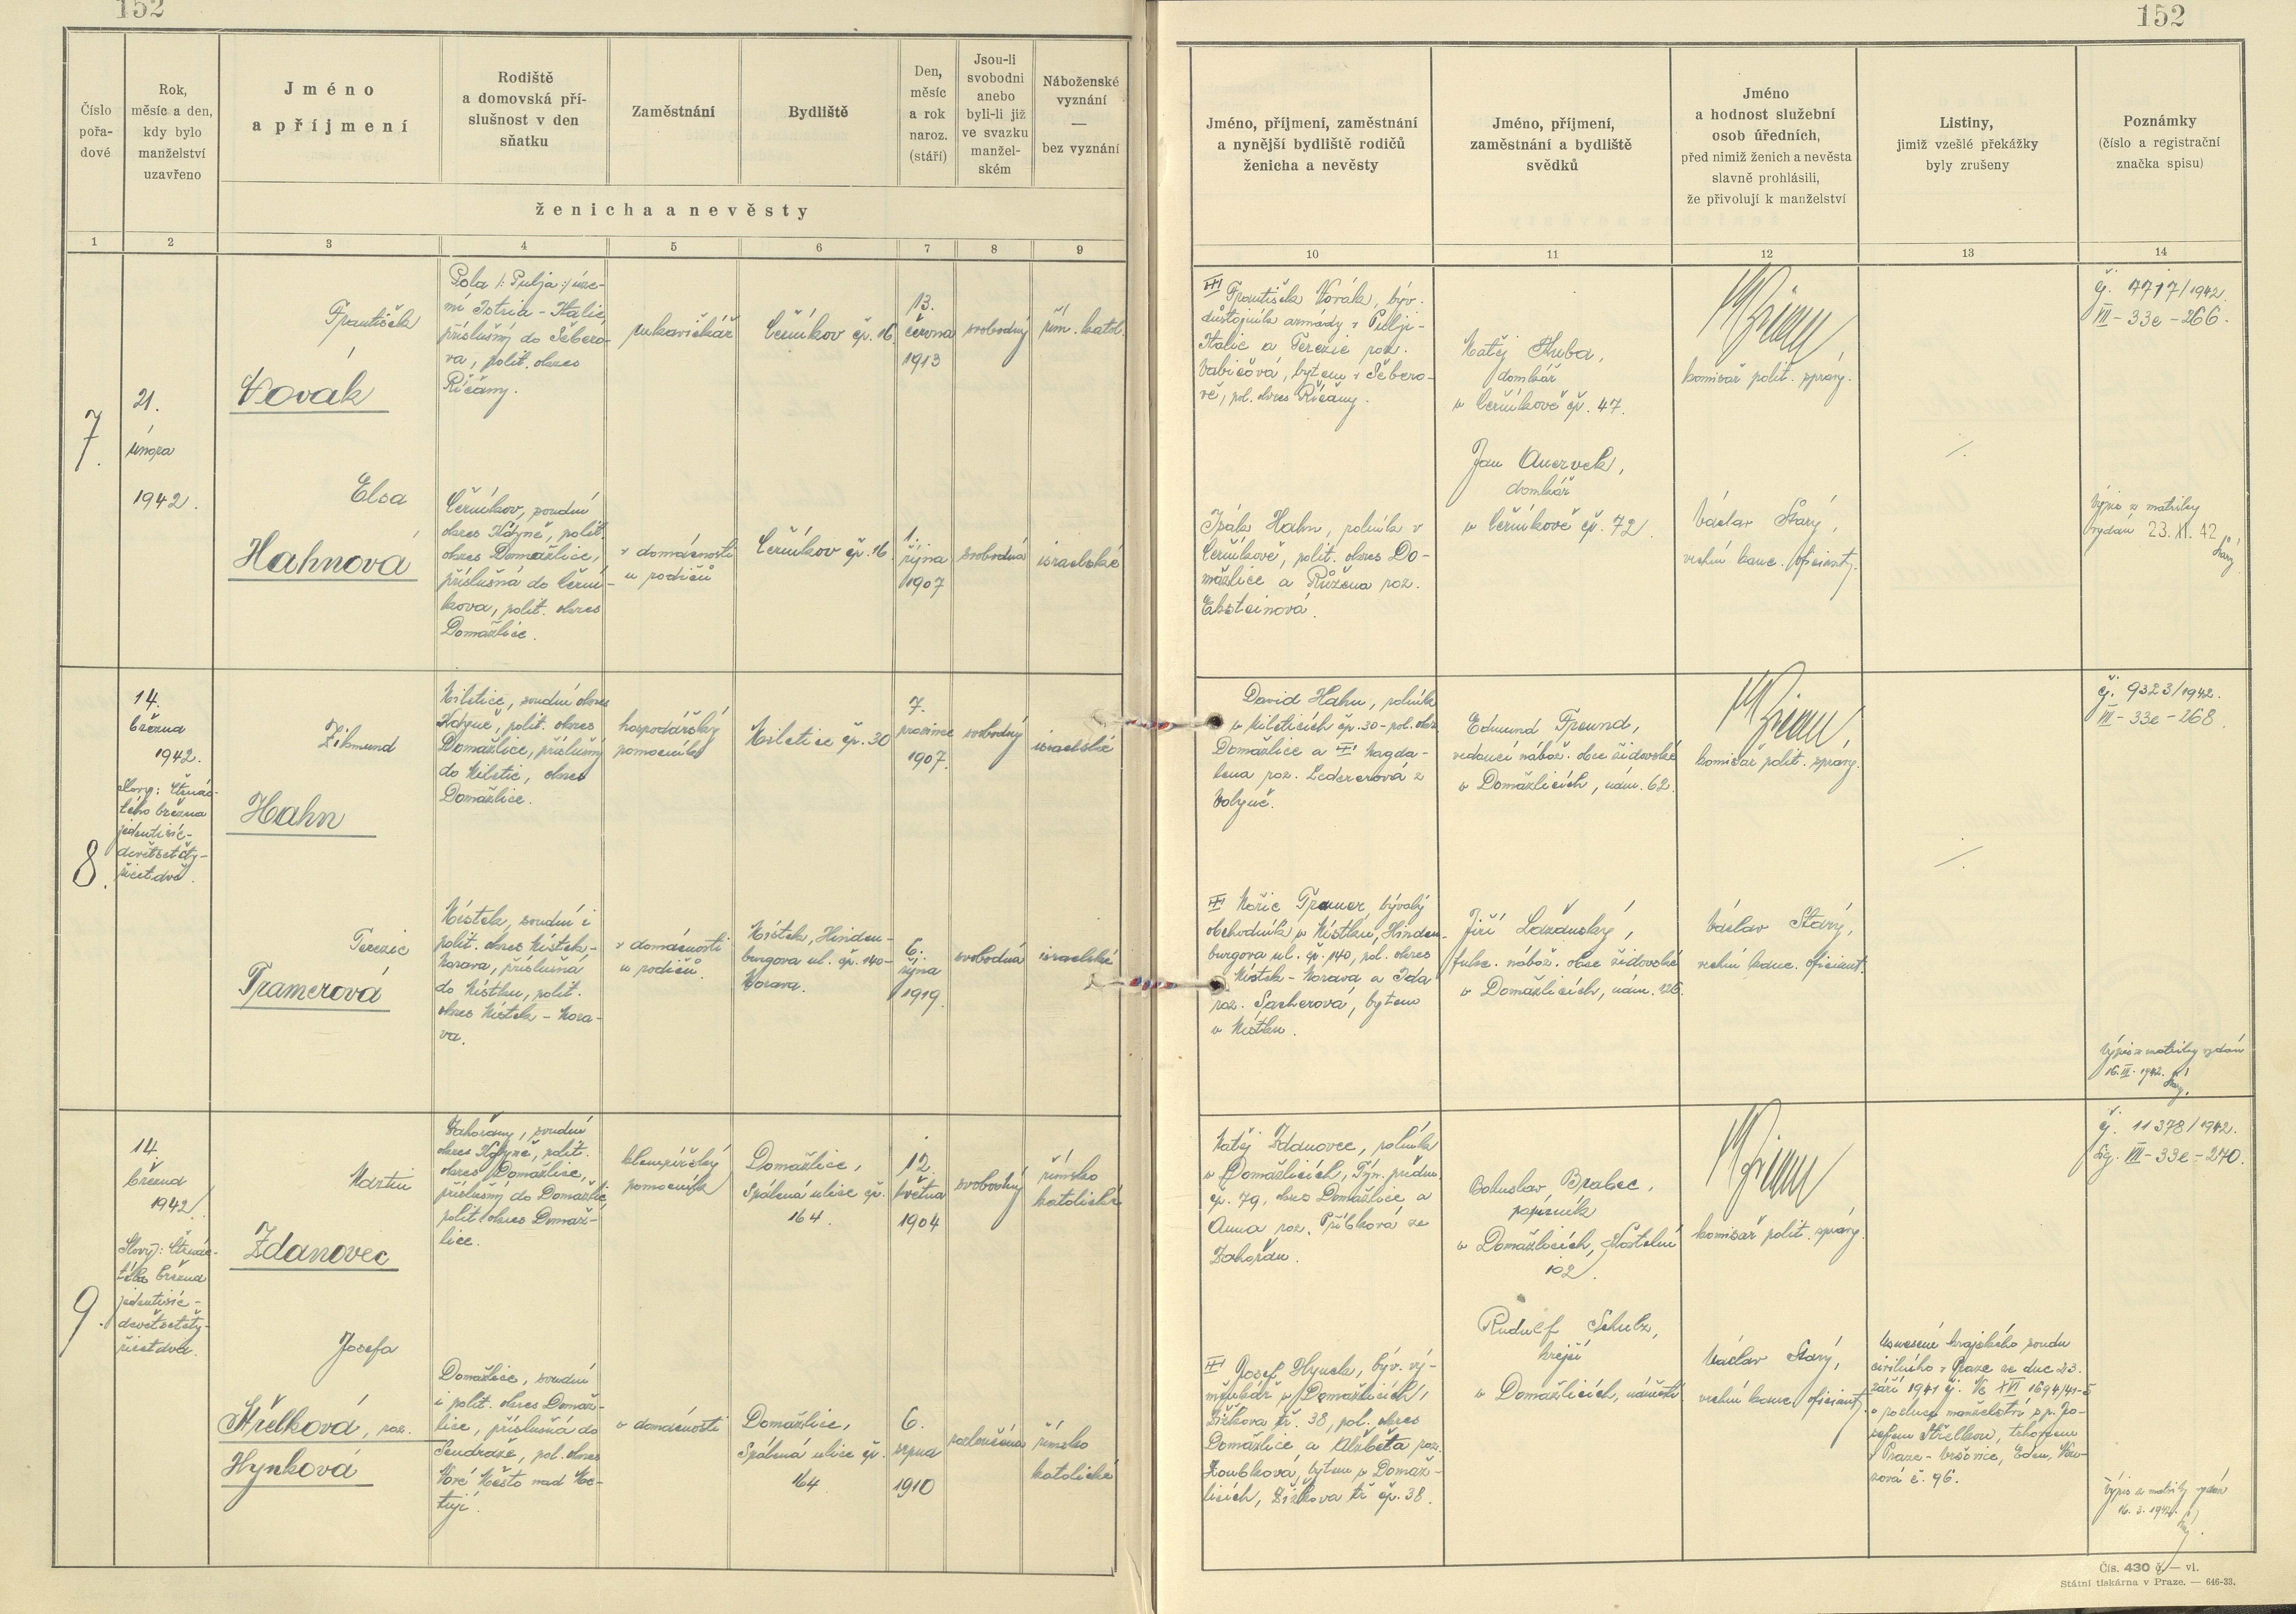 152
152
Číslo
pořa-
dové
Rok,
měsíc a den,
kdy bylo
manželství
uzavřeno
Jméno
a příjmení
Rodiště
a domovská pří-
slušnost v den
sňatku
Zaměstnání
Bydliště
Den,
měsíc
a rok
naroz.
(stáří)
Jsou-li
svobodni
anebo
byli-li již
ve svazku
manžel-
ském
Náboženské
vyznání
—
bez vyznání
ženicha a nevěsty
Jméno, příjmení, zaměstnání
a nynější bydliště rodičů
ženicha a nevěsty
Jméno, příjmení,
zaměstnání a bydliště
svědků
Jméno
a hodnost služební
osob úředních,
před nimiž ženich a nevěsta
slavně prohlásili,
že přivolují k manželství
Listiny,
jimiž vzešlé překážky
byly zrušeny
Poznámky
(číslo a registrační
značka spisu)
1 2 3 4 5 6 7 8 9 10 11 12 13 14
7.
21.
února
1942.
František
Novák
Pola /: Pulja :/ úze-
mí Istria - Italie
příslušný do Šebero-
va, polit. okres
Říčany.
rukavičkář
Čerňíkov čp. 16
13.
června
1913
svobodný
řím. katol.
František Novák, býv.
důstojník armády v Pulji-
Italie a Terezie roz.
Vabičová, bytem v Šebero-
vě, pol. okres Říčany.
Matěj Huba,
domkář
v Čerňíkově čp. 47.
komisař polit. správy.
čj. 7717/1942.
VII - 33e - 266.
Elsa
Hahnová
Čerňíkov, soudní
okres Kdyně, polit.
okres Domažlice,
příslušná do Čerňí-
kova, polit. okres
Domažlice.
v domácnosti
u rodičů
Čerňíkov čp. 16
1.
října
1907
svobodná
israelské
Izák Hahn, rolník v
Čerňíkově, polit. okres Do-
mažlice a Růžena roz.
Eksteinová.
Jan Auervek,
domkář
v Čerňíkově čp. 72.
Václav Starý,
vrchní kanc. oficiant.
Výpis z matriky
vydán 23. XI. 42
Starý
8.
14.
března
1942.
Slovy: Čtrnác-
tého března
jedentisíc-
devětsetčty-
řicetdva.
Zikmund
Hahn
Miletice, soudní okres
Kdyně, polit. okres
Domažlice, příslušný
do Miletic, okres
Domažlice.
hospodářský
pomocník
Miletice čp. 30
7.
prosince
1907.
svobodný
israelské
David Hahn, rolník
v Mileticích čp. 30 - pol. okr.
Domažlice a Magda-
lena roz. Ledererová z
Volyně.
Edmund Freund,
vedoucí nábož. obce židovské
v Domažlicích, nám. 62.
komisař polit. správy.
čj. 9323/1942.
VII - 33e - 268
Terezie
Tramerová
Místek, soudní i
polit. okres Místek -
Morava, příslušná
do Místku, polit.
okres Místek - Mora-
va.
v domácnosti
u rodičů.
Místek, Hinden-
burgova ul. čp. 140-
Morava.
6.
října
1919.
svobodná
israelské
Mořic Tramer, bývalý
obchodník v Místku, Hinden-
burgova ul. čp. 140, pol. okres
Místek - Morava a Ida
roz. Sacherová, bytem
v Místku.
Jiří Lažanský,
funkc. nábož. obce židovské
v Domažlicích, nám. 126.
Václav Starý,
vrchní kanc. oficiant.
Výpis z matriky vydán
16. III. 1942.
Starý.
9.
14.
března
1942
Slovy: Čtrnác-
tého března
jedentisíc-
devětsetčty-
řicetdva.
Martin
Zdanovec
Zahořany, soudní
okres Kdyně, polit.
okres Domažlice,
příslušný do Domažlic
polit. okres Domaž-
lice.
klempířský
pomocník
Domažlice,
Spálená ulice čp.
164.
12.
května
1904
svobodný
římsko
katolické
Matěj Zdanovec, rolník
v Domažlicích, Týn. předm.
čp. 79, okres Domažlice a
Anna roz. Příbková ze
Zahořan.
Bohuslav Brabec,
papírník
v Domažlicích, Kostelní
102.
komisař polit. správy.
čj. 11378/1942.
Sig. VII - 33e - 270.
Josefa
Střelková, roz.
Hynková
Domažlice, soudní
i polit. okres Domaž-
lice, příslušná do
Sendraže, pol. okres
Nové Město nad Me-
tují.
v domácnosti
Domažlice,
Spálená ulice čp.
164
6.
srpna
1910
rozloučená
římsko
katolické
Josef Hynek, býv. vý-
měnkář v Domažlicích,
Žižkova tř. 38, pol. okres
Domažlice a Alžběta roz.
Zoubková, bytem v Domaž-
licích, Žižkova tř. čp. 38.
Rudolf Schulz,
krejčí
v Domažlicích, náměstí
Václav Starý,
vrchní kanc. oficiant.
Usnesení krajského soudu
civilního v Praze ze dne 23.
září 1941 čj. 1694/41-5
o rozluce manželství s p. Jo-
sefem Střelkou, trhovcem
v Praze - Vršovice, Eden,
č. 96.
Výpis z matriky vydán
16. 3. 1942.
Starý.
Čís. 430 č — vl.
Státní tiskárna v Praze. — 646-33.